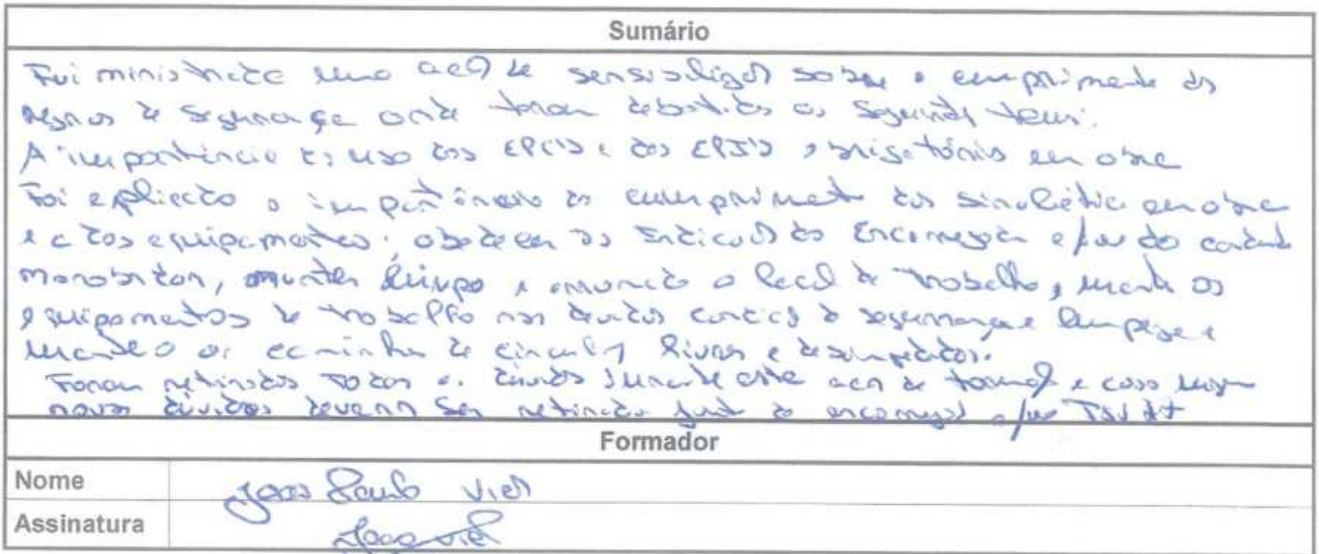 Sumário
Foi ministrada uma acção de sensibilização sobre o cumprimento das
regras de segurança onde foram debatidos os seguintes temas:
A importância do uso dos EPC's e dos EPI's obrigatórios em obra
Foi explicado a importância do cumprimento da sinalética em obra
e a dos equipamentos, obedecer as indicações do Encarregado e/ou do
manobrador, manter limpo e arrumado o local de trabalho, manter os
equipamentos de trabalho nas devidas condições de segurança e limpeza e
os caminhos de circulação livres e desimpedidos.
Foram retiradas todas as dúvidas durante esta acção de formação e caso
novas dúvidas devem ser retiradas junto do encarregado e/ou
Formador
Nome João Paulo
Assinatura